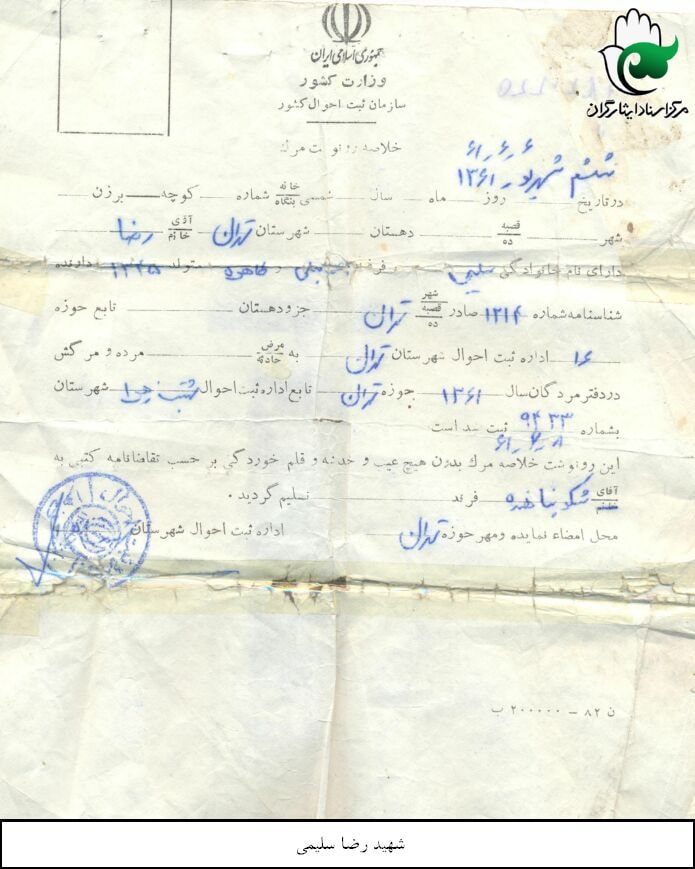 جمهوری اسلامی ایران
وزارت کشور
سازمان ثبت احوال کشور
مرکز اسناد ایثارگران
خلاصه رونوشت مرگ
۶ر۶ر۶۱
ششم شهریور ۱۳۶۱
در تاریخ روز ماه سال شمسی خانه بنگاه شماره کوچه برزن
شهر قصبه ده دهستان شهرستان تهران آقای خانم رضا
دارای نام خانوادگی سلیمی و فرزند و طاهره متولد ۱۳۴۵ دارنده
شناسنامه شماره ۱۲۱۴ صادر شهر قصبه ده تهران جزو دهستان تابع حوزه
۱۶ اداره ثبت احوال شهرستان تهران به مرض حادثه مرده و مرگش
در دفتر مردگان سال ۱۳۶۱ حوزه تهران تابع اداره ثبت احوال شهرستان
بشماره ۹۴۳۳ ثبت شده است
این رونوشت خلاصه مرگ بدون هیچ عیب و خدشه و قلم خوردگی بر حسب تقاضانامه کتبی به
آقای خانم فرزند تسلیم گردید.
محل امضاء نماینده و مهر حوزه تهران اداره ثبت احوال شهرستان
ن ۸۲ – ۲۰۰۰۰۰ ب
شهید رضا سلیمی